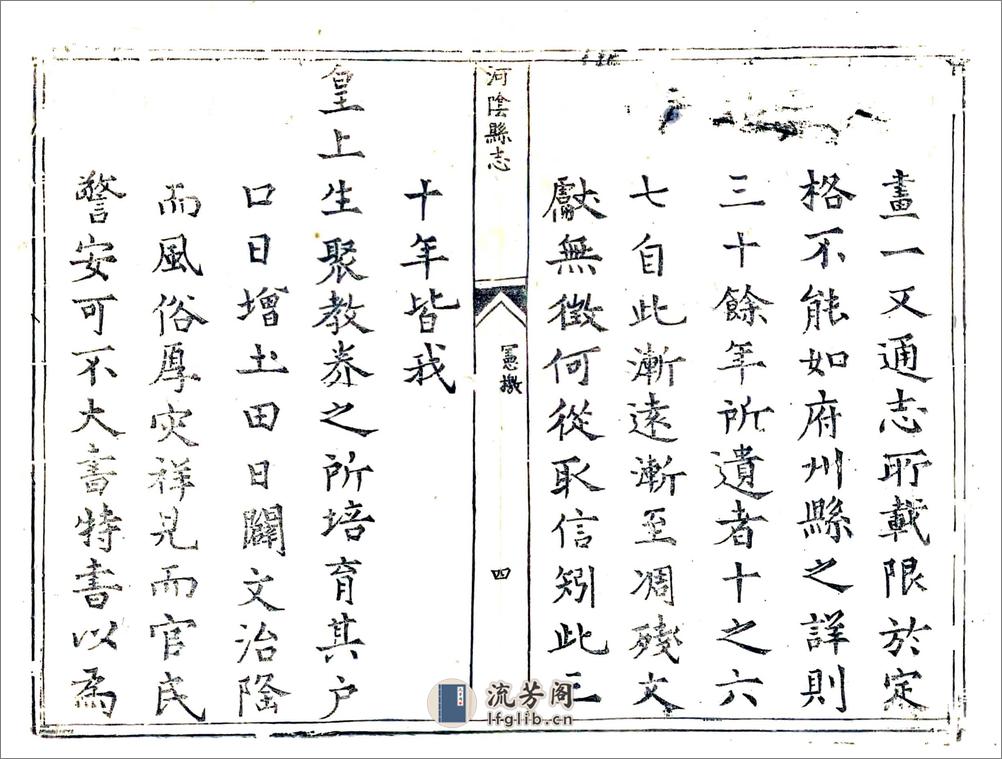 畫一又通志所載限於定
格不能如府州縣之詳則
三十餘年所遺者十之六
七自此漸遠漸至凋殘文
獻無徵何從取信矧此三
河陰縣志
憲檄
四
十年皆我
皇上生聚教养之所培育其户
口日增土田日闢文治隆
而風俗厚灾祥見而官民
警安可不大書特書以為
流芳阁
lfglib.cn